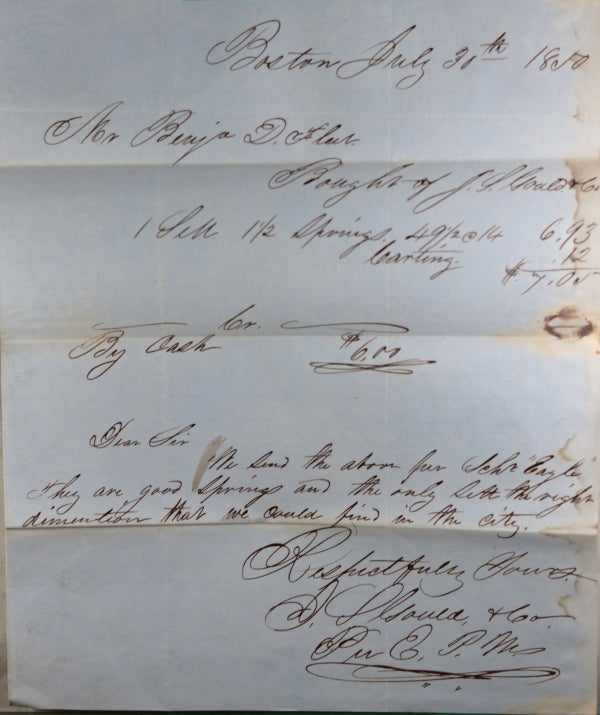 Boston July 30th 1850
Mr Benja D.
Bought of J. S. Gould & Co.
1 Sett 1 1/2 Springs. 49 1/2 @ 14 6.93
Carting. .12
$ 7.05
Cr.
By Cash $6.00
Dear Sir
We send the above per Schr "Eagle"
They are good Springs and the only Sett the right
dimention that we could find in the city.
Respectfully Yours.
J. S. Gould, & Co.
Per E. P. M